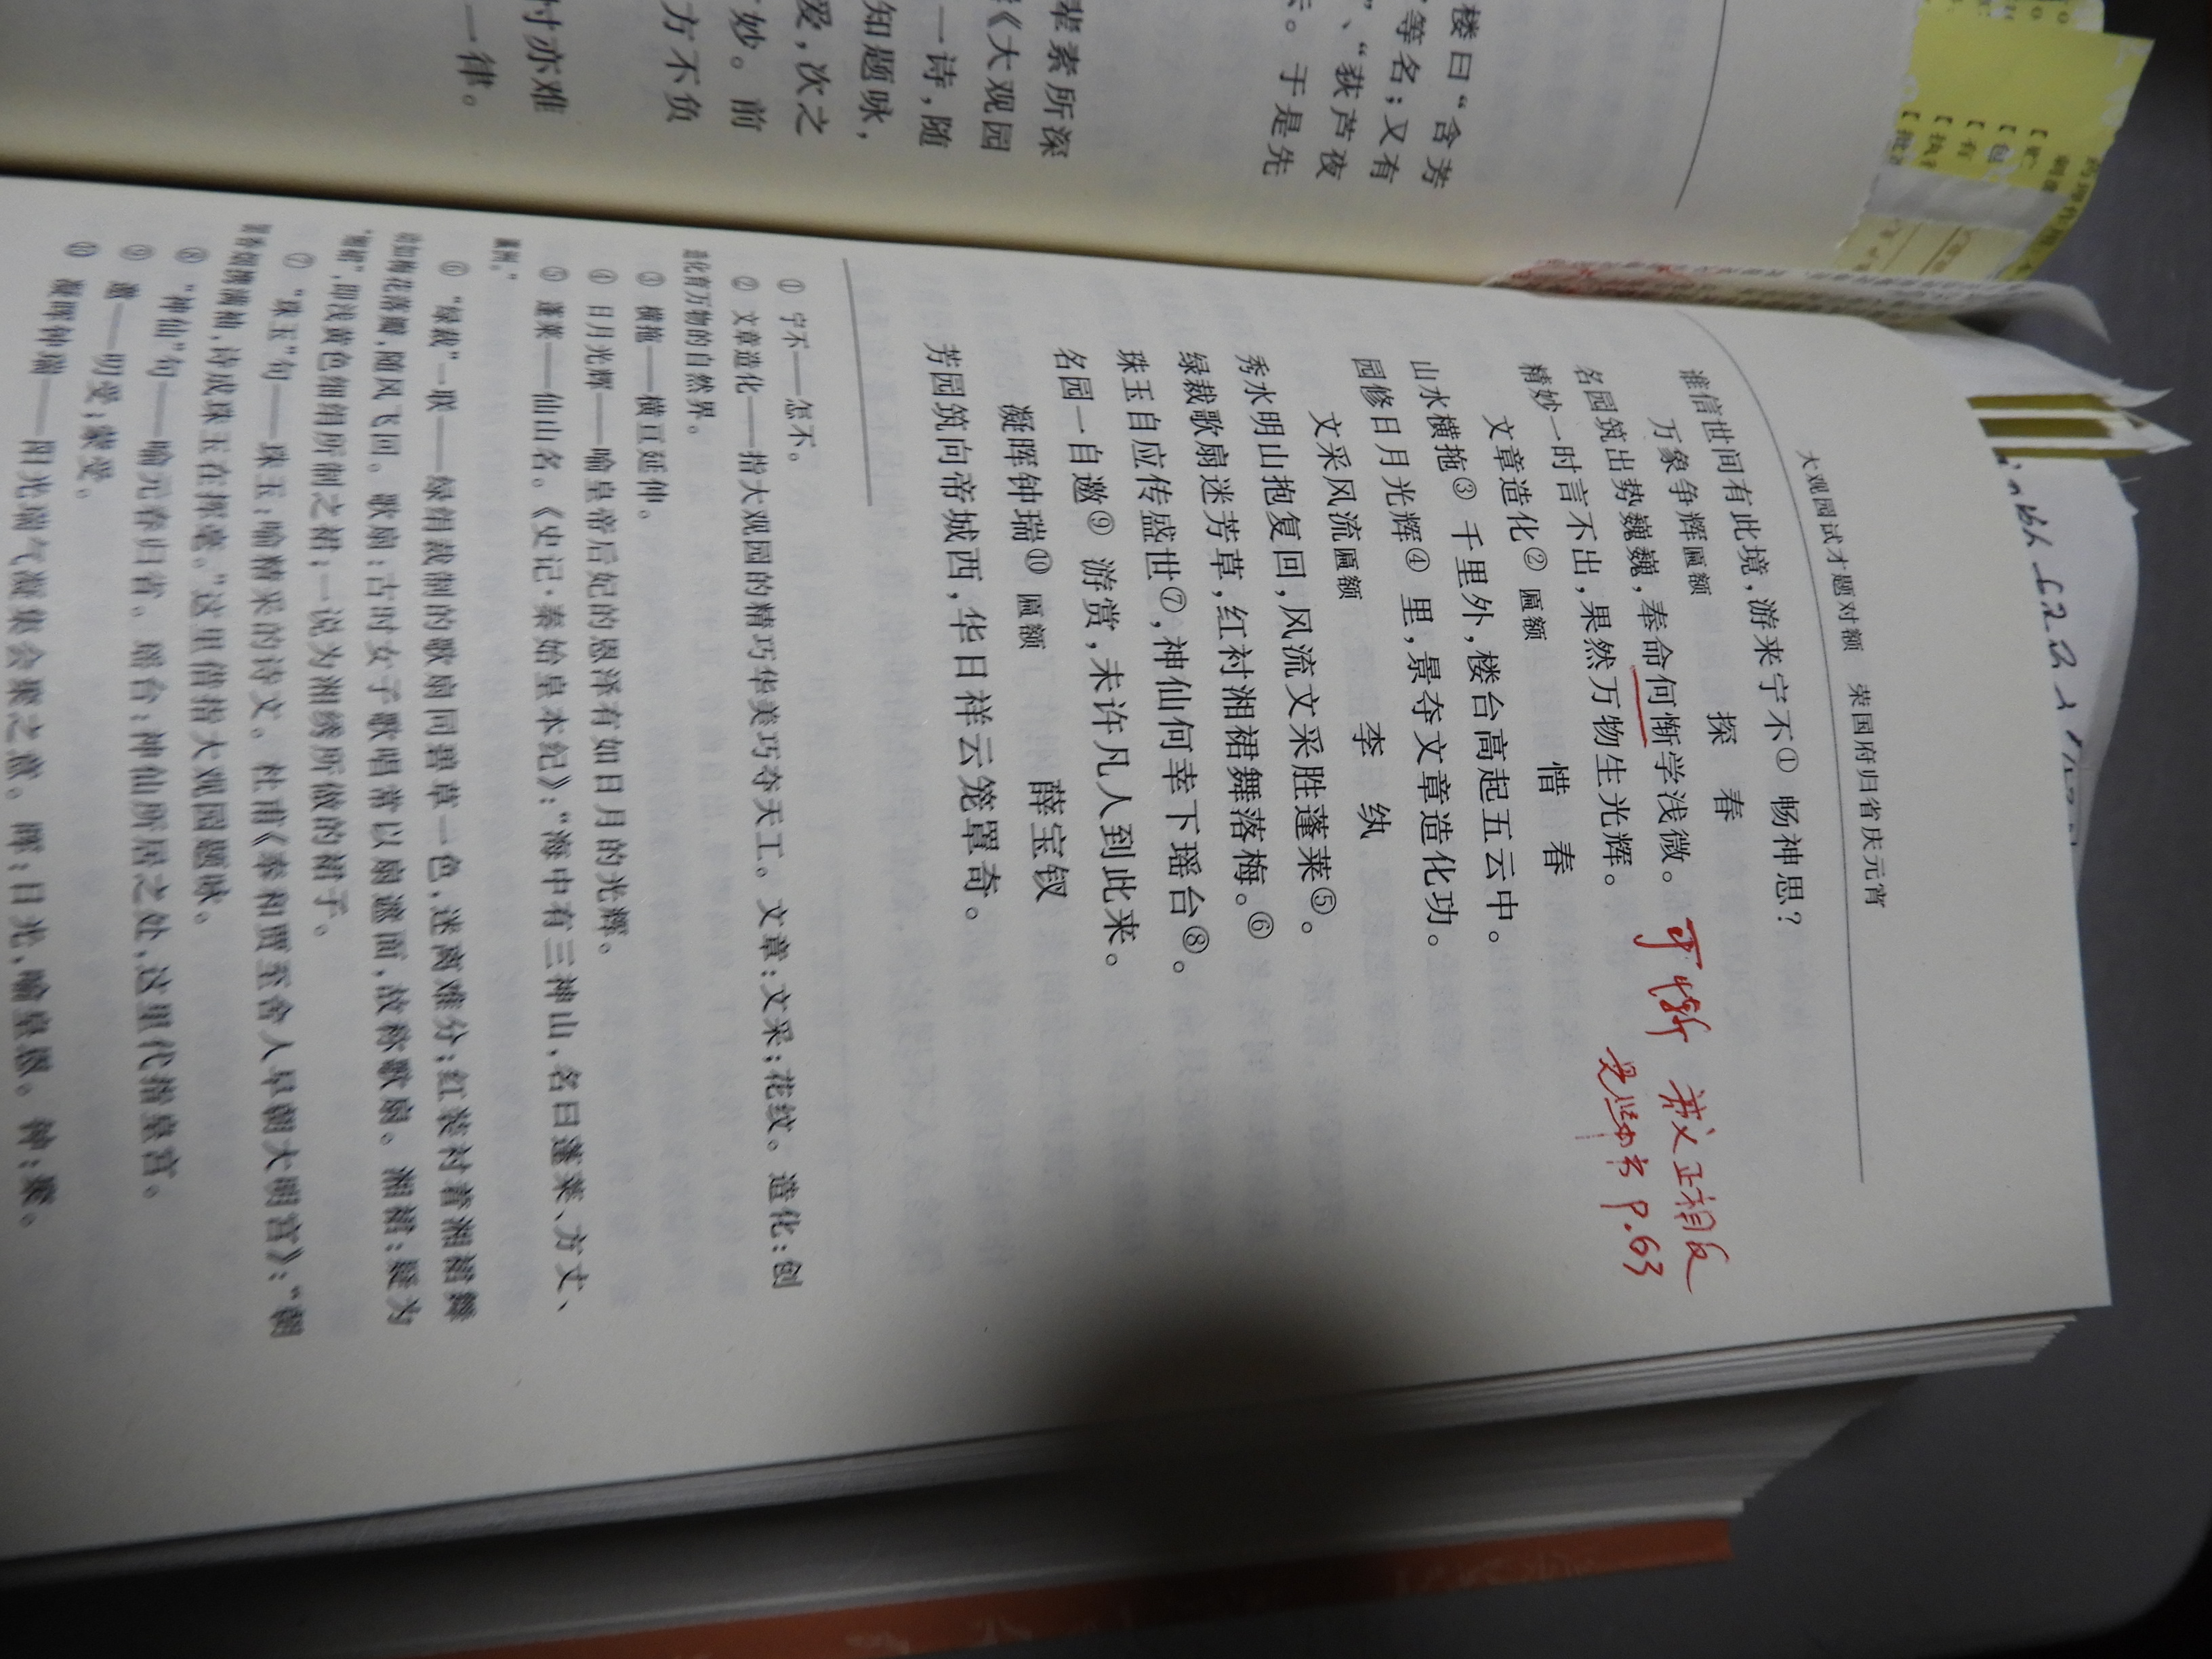 楼曰“含芳
等名；又有
”、“荻芦夜
。于是先
辈素所深
《大观园
一诗，随
知题咏，
爱，次之
妙。前
方不负
时亦难
一律。
大观园试才题对额 荣国府归省庆元宵
谁信世间有此境，游来宁不① 畅神思？
万象争辉匾额 探 春
名园筑出势巍巍，奉命何惭学浅微。
精妙一时言不出，果然万物生光辉。
可惭 义正相反
见 书 P.63
文章造化② 匾额 惜 春
山水横拖③ 千里外，楼台高起五云中。
园修日月光辉④ 里，景夺文章造化功。
文采风流匾额 李 纨
秀水明山抱复回，风流文采胜蓬莱⑤。
绿裁歌扇迷芳草，红衬湘裙舞落梅。⑥
珠玉自应传盛世⑦，神仙何幸下瑶台⑧。
名园一自邀⑨ 游赏，未许凡人到此来。
凝晖钟瑞⑩ 匾额 薛宝钗
芳园筑向帝城西，华日祥云笼罩奇。
① 宁不——怎不。
② 文章造化——指大观园的精巧华美巧夺天工。文章：文采；花纹。造化：创
造化育万物的自然界。
③ 横拖——横亘延伸。
④ 日月光辉——喻皇帝后妃的恩泽有如日月的光辉。
⑤ 蓬莱——仙山名。《史记·秦始皇本纪》：“海中有三神山，名曰蓬莱、方丈、
瀛洲。”
⑥ “绿裁”一联——绿绢裁制的歌扇同碧草一色，迷离难分；红装衬着湘裙褶舞
动如梅花落瓣，随风飞回。歌扇：古时女子歌唱常以扇遮面，故称歌扇。湘裙：疑为
“缃裙”，即浅黄色细绢所制之裙；一说为湘绣所做的裙子。
⑦ “珠玉”句——珠玉：喻精采的诗文。杜甫《奉和贾至舍人早朝大明宫》：“朝
罢香烟携满袖，诗成珠玉在挥毫。”这里借指大观园题咏。
⑧ “神仙”句——喻元春归省。瑶台：神仙所居之处，这里代指皇宫。
⑨ 邀——叨爱；蒙受。
⑩ 凝晖钟瑞——阳光瑞气凝集会聚之意。晖：日光，喻皇恩。钟：聚。